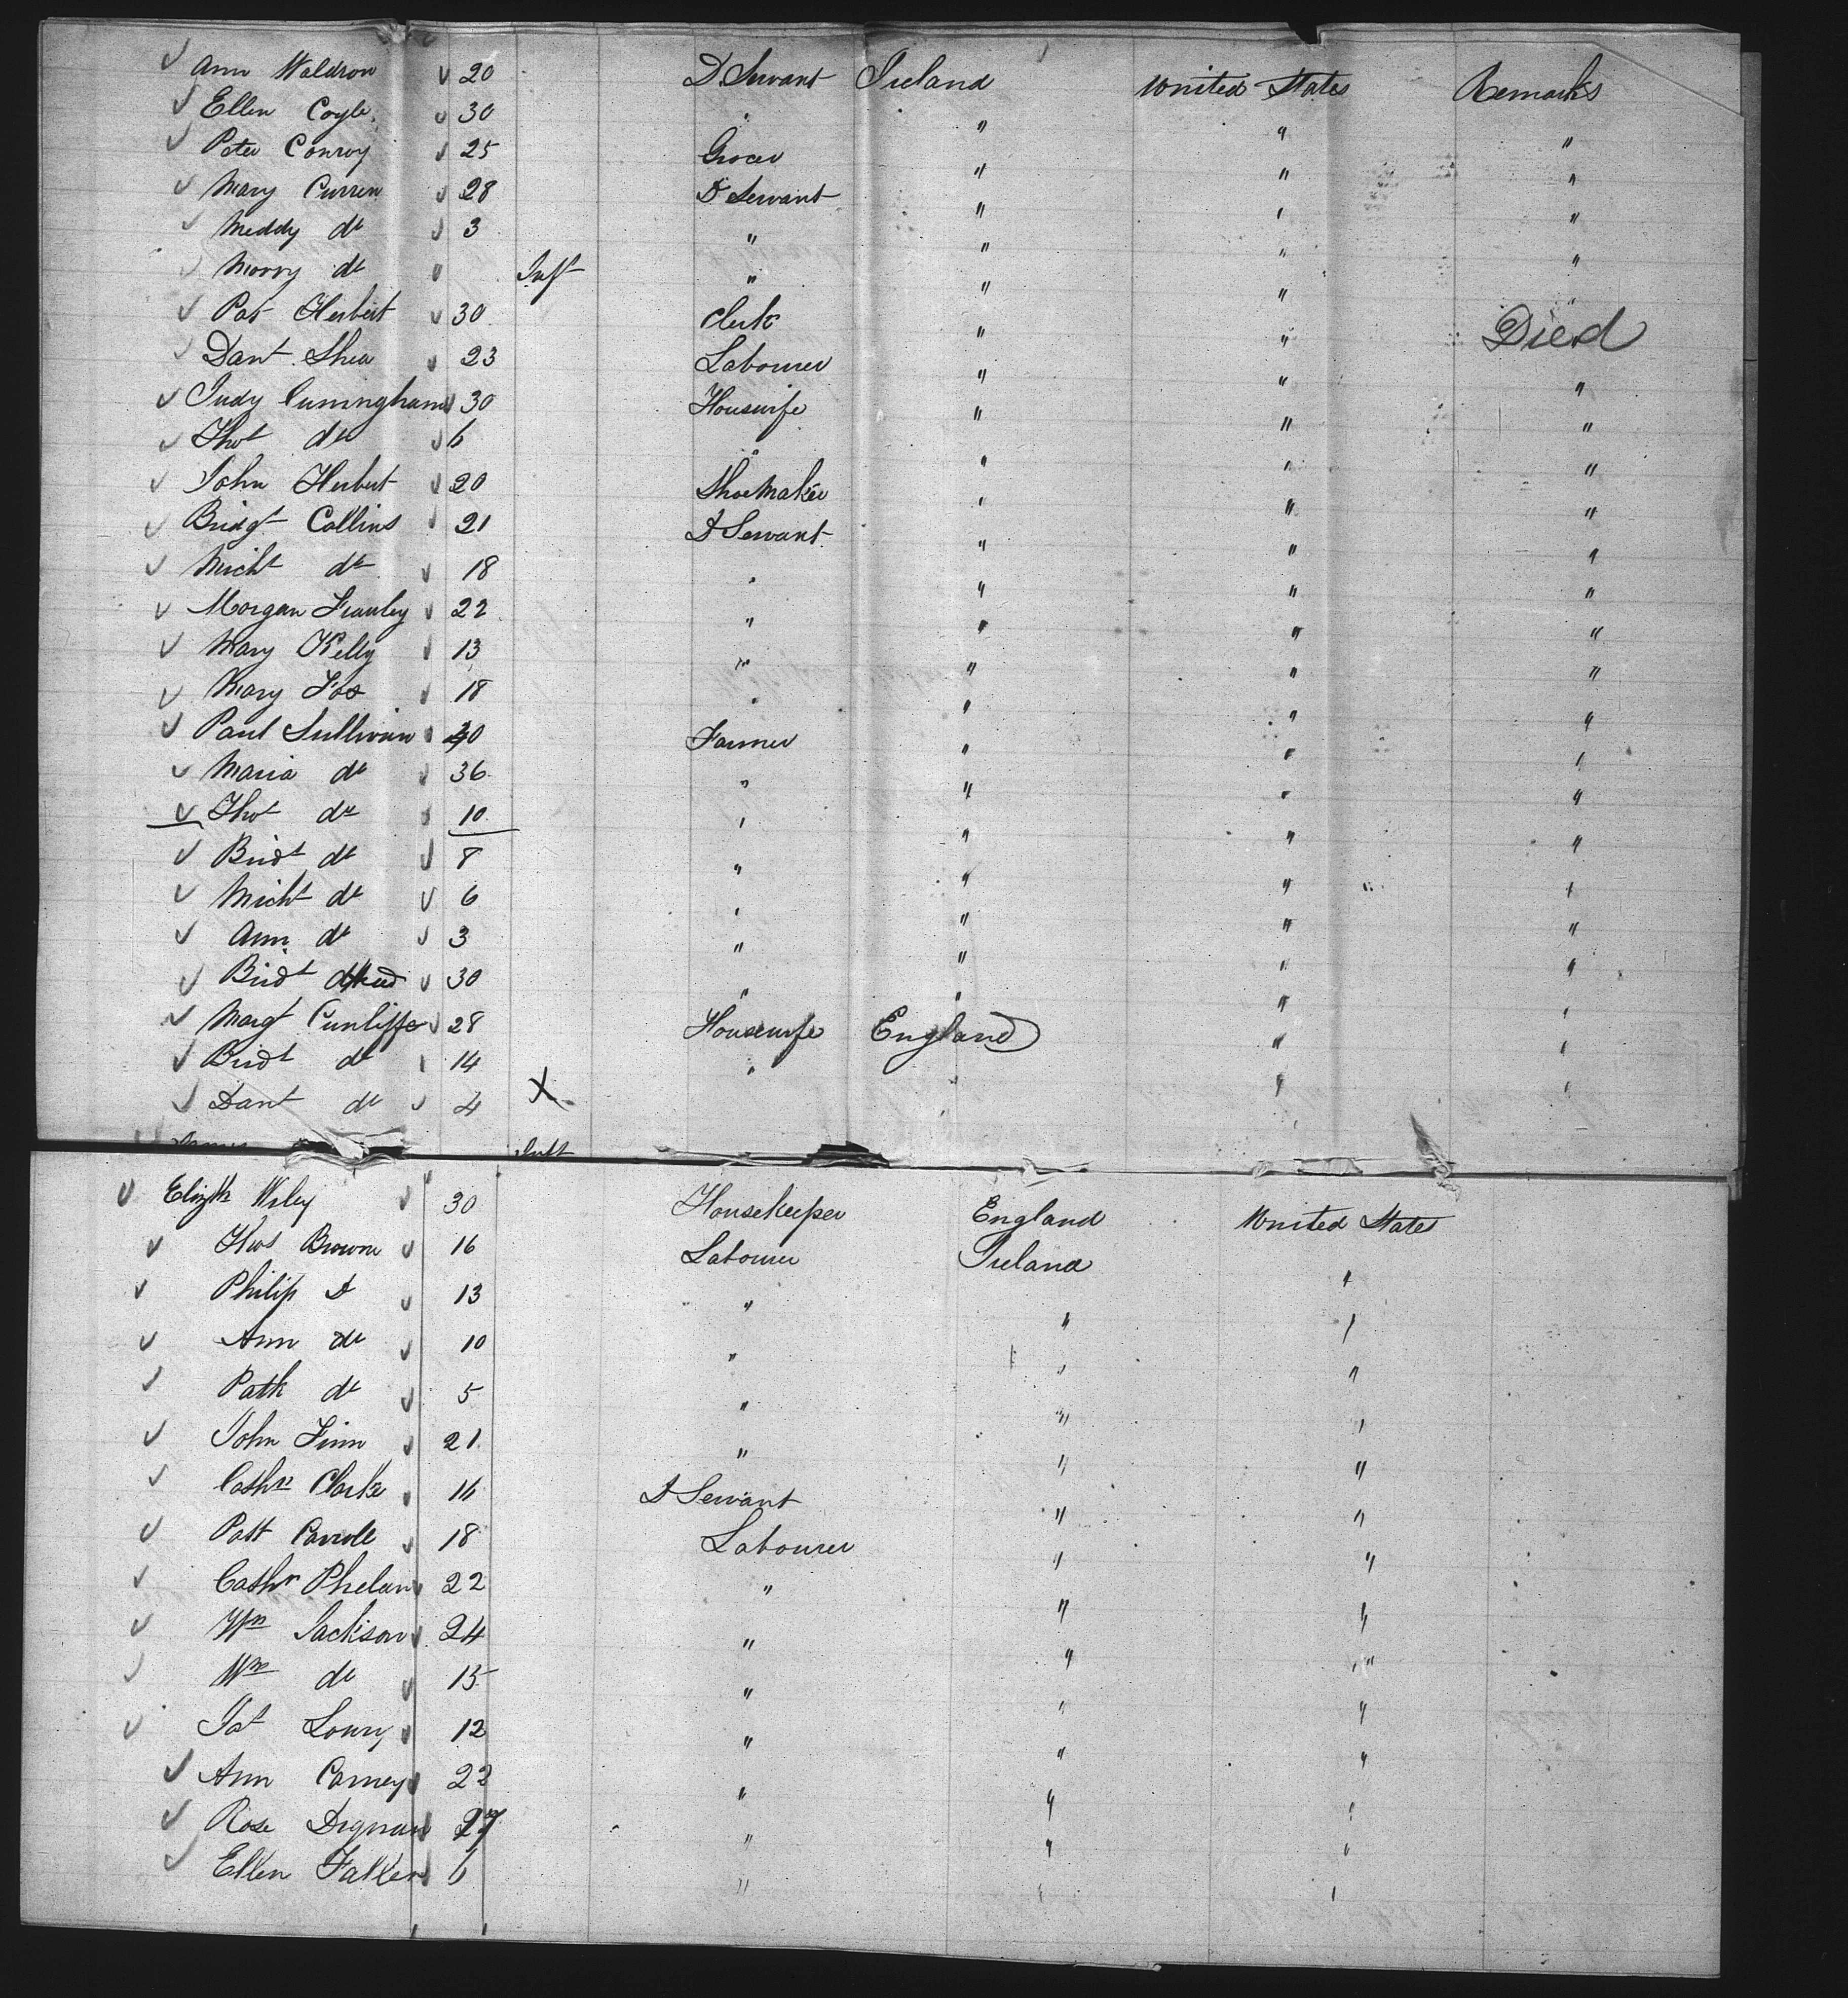 Ann Waldron 20 D Servant Ireland United States Remarks
Ellen Coyle 30 " " " "
Peter Conroy 25 Grocer " " "
Mary Curren 28 D Servant " " "
Meddy do 3 " " " "
Morry do Inft " " " "
Pat Herbert 30 Clerk " " Died
Danl Shea 23 Labourer " " "
Judy Cuningham 30 Housewife " " "
Thos do 6 " " " "
John Herbert 20 Shoemaker " " "
Bridgt Collins 21 D Servant " " "
Michl do 18 " " " "
Morgan Frawley 22 " " " "
Mary Kelly 13 " " " "
Mary Fox 18 " " " "
Paul Sullivan 40 Farmer " " "
Maria do 36 " " " "
Thos do 10 " " " "
Bridt do 8 " " " "
Michl do 6 " " " "
Ann do 3 " " " "
Bridt 30 " " " "
Margt Cunliffe 28 Housewife England " "
Bridt do 14 " " " "
Danl do 4 X " " "
James Inft
Elizth Wiley 30 Housekeeper England United States
Thos Brown 16 Labourer Ireland "
Philip D 13 " " "
Ann do 10 " " "
Patk do 5 " " "
John Finn 21 " " "
Cathn Clarke 16 D Servant " "
Patt Carrole 18 Labourer " "
Cathn Phelan 22 " " "
Wm Jackson 24 " " "
Wm do 15 " " "
Jas Lowry 12 " " "
Ann Carney 22 " " "
Rose Dignan 27 " " "
Ellen Fallen 6 " " "